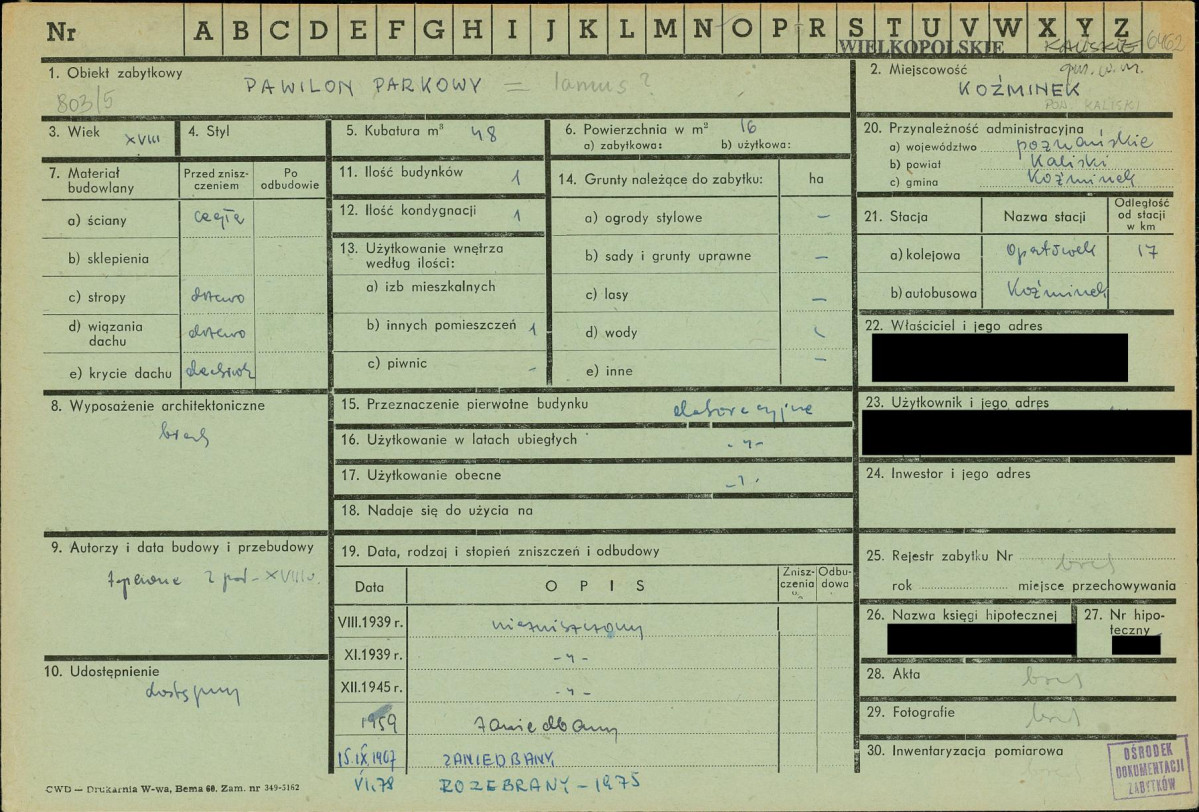 Nr A B C D E F G H I J K L M N O P R S T U V W X Y Z
WIELKOPOLSKIE KALISKIE 6462
1. Obiekt zabytkowy
803/5
PAWILON PARKOWY = lamus?
2. Miejscowość gm. w m.
KOŹMINEK
POW. KALISKI
3. Wiek XVIII
4. Styl
5. Kubatura m³ 48
6. Powierzchnia w m² 16
a) zabytkowa: b) użytkowa:
20. Przynależność administracyjna
a) województwo poznańskie
b) powiat Kaliski
c) gmina Koźminek
7. Materiał budowlany
Przed znisz-
czeniem
Po
odbudowie
a) ściany cegła
b) sklepienia
c) stropy drzewo
d) wiązania dachu drzewo
e) krycie dachu dachówk
11. Ilość budynków 1
12. Ilość kondygnacji 1
13. Użytkowanie wnętrza
według ilości:
a) izb mieszkalnych
b) innych pomieszczeń 1
c) piwnic -
14. Grunty należące do zabytku: ha
a) ogrody stylowe –
b) sady i grunty uprawne –
c) lasy –
d) wody
e) inne –
21. Stacja
Nazwa stacji
Odległość
od stacji
w km
a) kolejowa Opatówek 17
b) autobusowa Koźminek
22. Właściciel i jego adres
23. Użytkownik i jego adres
24. Inwestor i jego adres
8. Wyposażenie architektoniczne
brak
15. Przeznaczenie pierwotne budynku dekoracyjne
16. Użytkowanie w latach ubiegłych -„-
17. Użytkowanie obecne -„-
18. Nadaje się do użycia na
9. Autorzy i data budowy i przebudowy
zapewne 2 poł. XVIII w.
10. Udostępnienie
dostępny
19. Data, rodzaj i stopień zniszczeń i odbudowy
Data OPIS
Znisz-
czenia
%
Odbu-
dowa
VIII.1939 r. niezniszczony
XI.1939 r. -„-
XII.1945 r. -„-
1959 zaniedbany
15.IX.1967 ZANIEDBANY
VI.78 ROZEBRANY – 1975
25. Rejestr zabytku Nr brak
rok miejsce przechowywania
26. Nazwa księgi hipotecznej
27. Nr hipo-
teczny
28. Akta brak
29. Fotografie brak
30. Inwentaryzacja pomiarowa
brak
OŚRODEK
DOKUMENTACJI
ZABYTKÓW
CWD — Drukarnia W-wa, Bema 60. Zam. nr 349-5162